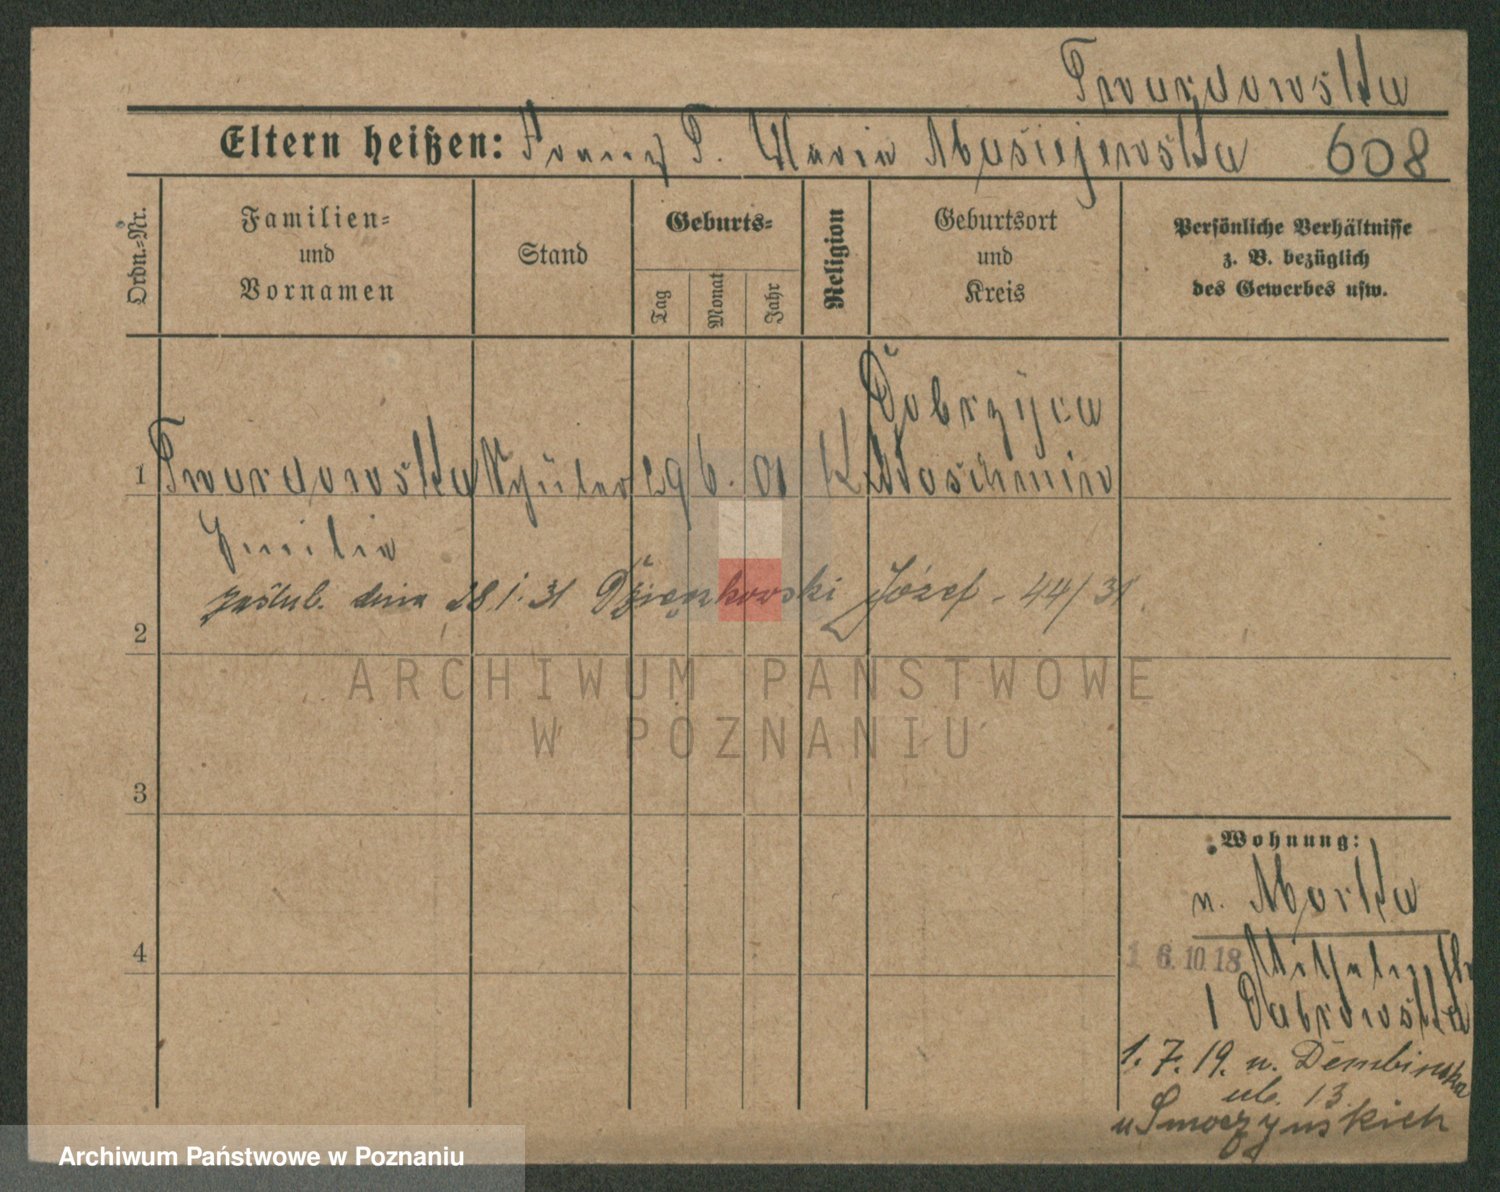 Twardowska
Eltern heißen: Franz T. Maria Masiejewska 608
Ordn.=Nr.
Familien=
und
Vornamen
Stand
Geburts=
Tag
Monat
Jahr
Religion
Geburtsort
und
Kreis
Persönliche Verhältnisse
z. B. bezüglich
des Gewerbes usw.
Dobrzyca
1 Twardowska 29 6. 01 K Koschmin
Emilia
zaślub. dnia 28.1.31 Józef - 44/31.
2
3
4
ARCHIWUM PAŃSTWOWE
W POZNANIU
Wohnung:
n.
16.10.18
1 Dabrowska
1.7.19. n. Dembinska
ul. 13
u Smoczynskich
Archiwum Państwowe w Poznaniu